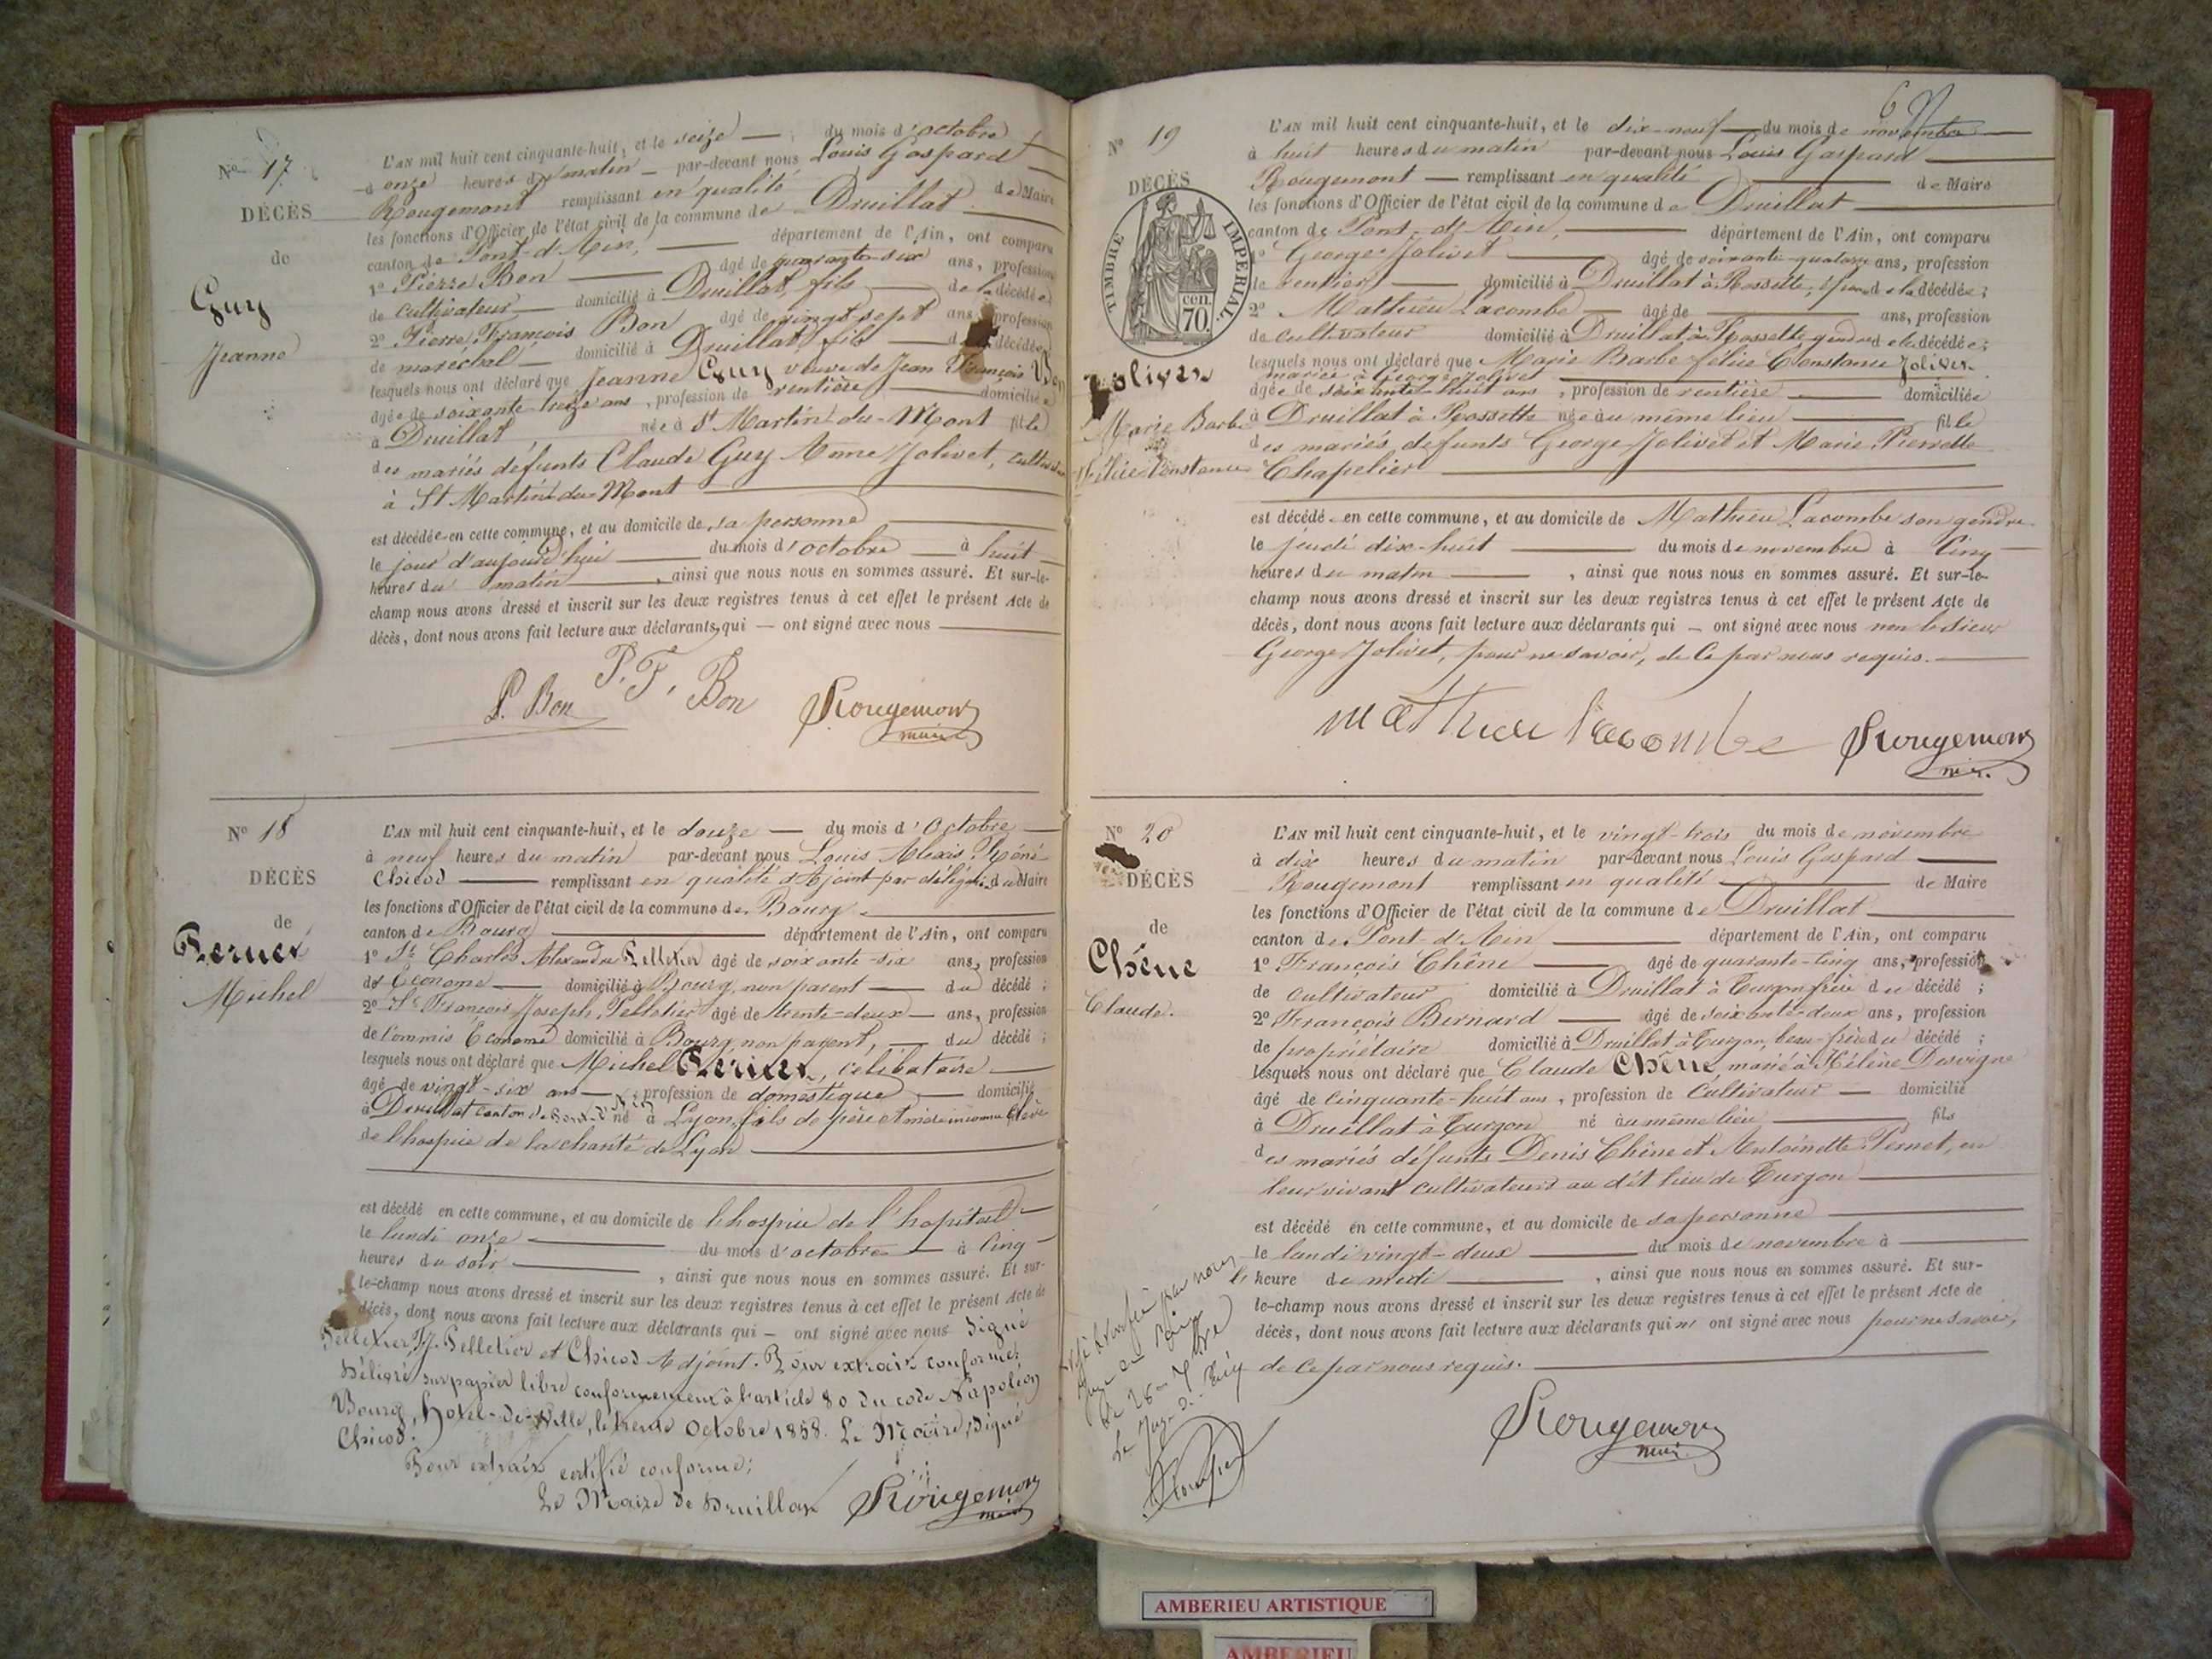 Nº 17
DÉCÈS
de
Guy
Jeanne
L'AN mil huit cent cinquante-huit, et le seize du mois d'octobre
à onze heures du matin par-devant nous Louis Gaspard
Rougemont remplissant en qualité de Maire
les fonctions d'Officier de l'état civil de la commune de Druillat
canton de Pont-d'Ain, département de l'Ain, ont comparu
1º Pierre Bon âgé de quarante-six ans, profession
de cultivateur domicilié à Druillat, fils de la décédée
2º Pierre François Bon âgé de vingt sept ans, profession
de maréchal domicilié à Druillat, fils de la décédée
lesquels nous ont déclaré que Jeanne Guy veuve de Jean François Bon
âgée de soixante treize ans, profession de rentière domiciliée
à Druillat née à St Martin-du-Mont fille
des mariés défunts Claude Guy Anne Jolivet,
à St Martin du Mont
est décédée en cette commune, et au domicile de sa personne
le jour d'aujourd'hui du mois d'octobre à huit
heures du matin, ainsi que nous nous en sommes assuré. Et sur-le-
champ nous avons dressé et inscrit sur les deux registres tenus à cet effet le présent Acte de
décès, dont nous avons fait lecture aux déclarants, qui — ont signé avec nous
P. Bon P. F. Bon Rougemont
maire
Nº 18
DÉCÈS
de
Michel
L'AN mil huit cent cinquante-huit, et le douze du mois d'Octobre
à neuf heures du matin par-devant nous Louis Alexis René
Chicod remplissant en qualité d'Adjoint par délégation du Maire
les fonctions d'Officier de l'état civil de la commune de Bourg
canton de Bourg département de l'Ain, ont comparu
1º Sr Charles Alexandre Pelletier âgé de soixante-six ans, profession
d'Econome domicilié à Bourg, non parent du décédé ;
2º Sr François Joseph Pelletier âgé de trente-deux ans, profession
de Commis Econome domicilié à Bourg, non parent, du décédé ;
lesquels nous ont déclaré que Michel célibataire
âgé de vingt-six ans, profession de domestique domicilié
à Druillat canton de Pont-d'Ain né à Lyon, fils de père et mère inconnus Elève
de l'hospice de la charité de Lyon
est décédé en cette commune, et au domicile de l'hospice de l'hôpital
le lundi onze du mois d'octobre à cinq
heures du soir, ainsi que nous nous en sommes assuré. Et sur-
le-champ nous avons dressé et inscrit sur les deux registres tenus à cet effet le présent Acte de
décès, dont nous avons fait lecture aux déclarants qui — ont signé avec nous Signé
Pelletier, Pelletier et Chicod Adjoint. Pour extrait conforme:
Délivré sur papier libre conformément à l'article 80 du code Napoléon
Bourg, Hotel-de-Ville, le trente Octobre 1858. Le Maire, Signé
Chicod.
Pour extrait certifié conforme;
Le Maire de Druillat Rougemont
maire
6
Nº 19
DÉCÈS
TIMBRE IMPÉRIAL
70 cen.
Joliver
Marie Barbe
Félicie Constance
L'AN mil huit cent cinquante-huit, et le dix-neuf du mois de novembre
à huit heures du matin par-devant nous Louis Gaspard
Rougemont remplissant en qualité de Maire
les fonctions d'Officier de l'état civil de la commune de Druillat
canton de Pont-d'Ain, département de l'Ain, ont comparu
1º George Jolivet âgé de soixante-quatorze ans, profession
de rentier domicilié à Druillat à Rossette, époux de la décédée ;
2º Mathieu Lacombe âgé de ans, profession
de cultivateur domicilié à Druillat à Rossette gendre de la décédée ;
lesquels nous ont déclaré que Marie Barbe félice Constance Joliver
mariée à George Jolivet
âgée de soixante-huit ans, profession de rentière domiciliée
à Druillat à Rossette née au même lieu fille
des mariés défunts George Jolivet et Marie Pierrette
Chapelier
est décédé en cette commune, et au domicile de Mathieu Lacombe son gendre
le jeudi dix-huit du mois de novembre à cinq
heures du matin, ainsi que nous nous en sommes assuré. Et sur-le-
champ nous avons dressé et inscrit sur les deux registres tenus à cet effet le présent Acte de
décès, dont nous avons fait lecture aux déclarants qui — ont signé avec nous non le sieur
George Jolivet, pour ne savoir, de ce par nous requis.
mathieu lacombe Rougemont
maire
Nº 20
DÉCÈS
de
Chêne
Claude.
L'AN mil huit cent cinquante-huit, et le vingt-trois du mois de novembre
à dix heures du matin par-devant nous Louis Gaspard
Rougemont remplissant en qualité de Maire
les fonctions d'Officier de l'état civil de la commune de Druillat
canton de Pont-d'Ain département de l'Ain, ont comparu
1º François Chêne âgé de quarante-cinq ans, profession
de cultivateur domicilié à Druillat à Turgon frère du décédé ;
2º François Bernard âgé de soixante-deux ans, profession
de propriétaire domicilié à Druillat à Turgon, beau-frère du décédé ;
lesquels nous ont déclaré que Claude Chêne, marié à Hélène Desvigne
âgé de cinquante-huit ans, profession de Cultivateur domicilié
à Druillat à Turgon né au même lieu fils
des mariés défunts Denis Chêne et Antoinette Pernet, en
leur vivant cultivateurs au dit lieu de Turgon
est décédé en cette commune, et au domicile de sa personne
le lundi vingt-deux du mois de novembre à
heure de midi, ainsi que nous nous en sommes assuré. Et sur-
le-champ nous avons dressé et inscrit sur les deux registres tenus à cet effet le présent Acte de
décès, dont nous avons fait lecture aux déclarants qui n' ont signé avec nous pour ne savoir,
de ce par nous requis.
Rougemont
maire
par nous
AMBERIEU ARTISTIQUE
AMBERIEU